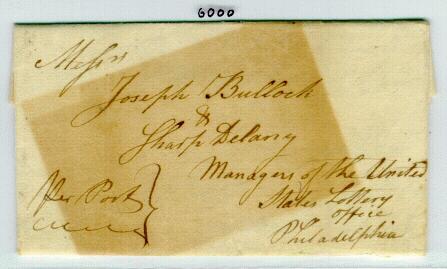 6000
Messrs
Joseph Bullock
&
Sharp Delany
Managers of the United
States Lottery
office
Philadelphia
Per Post